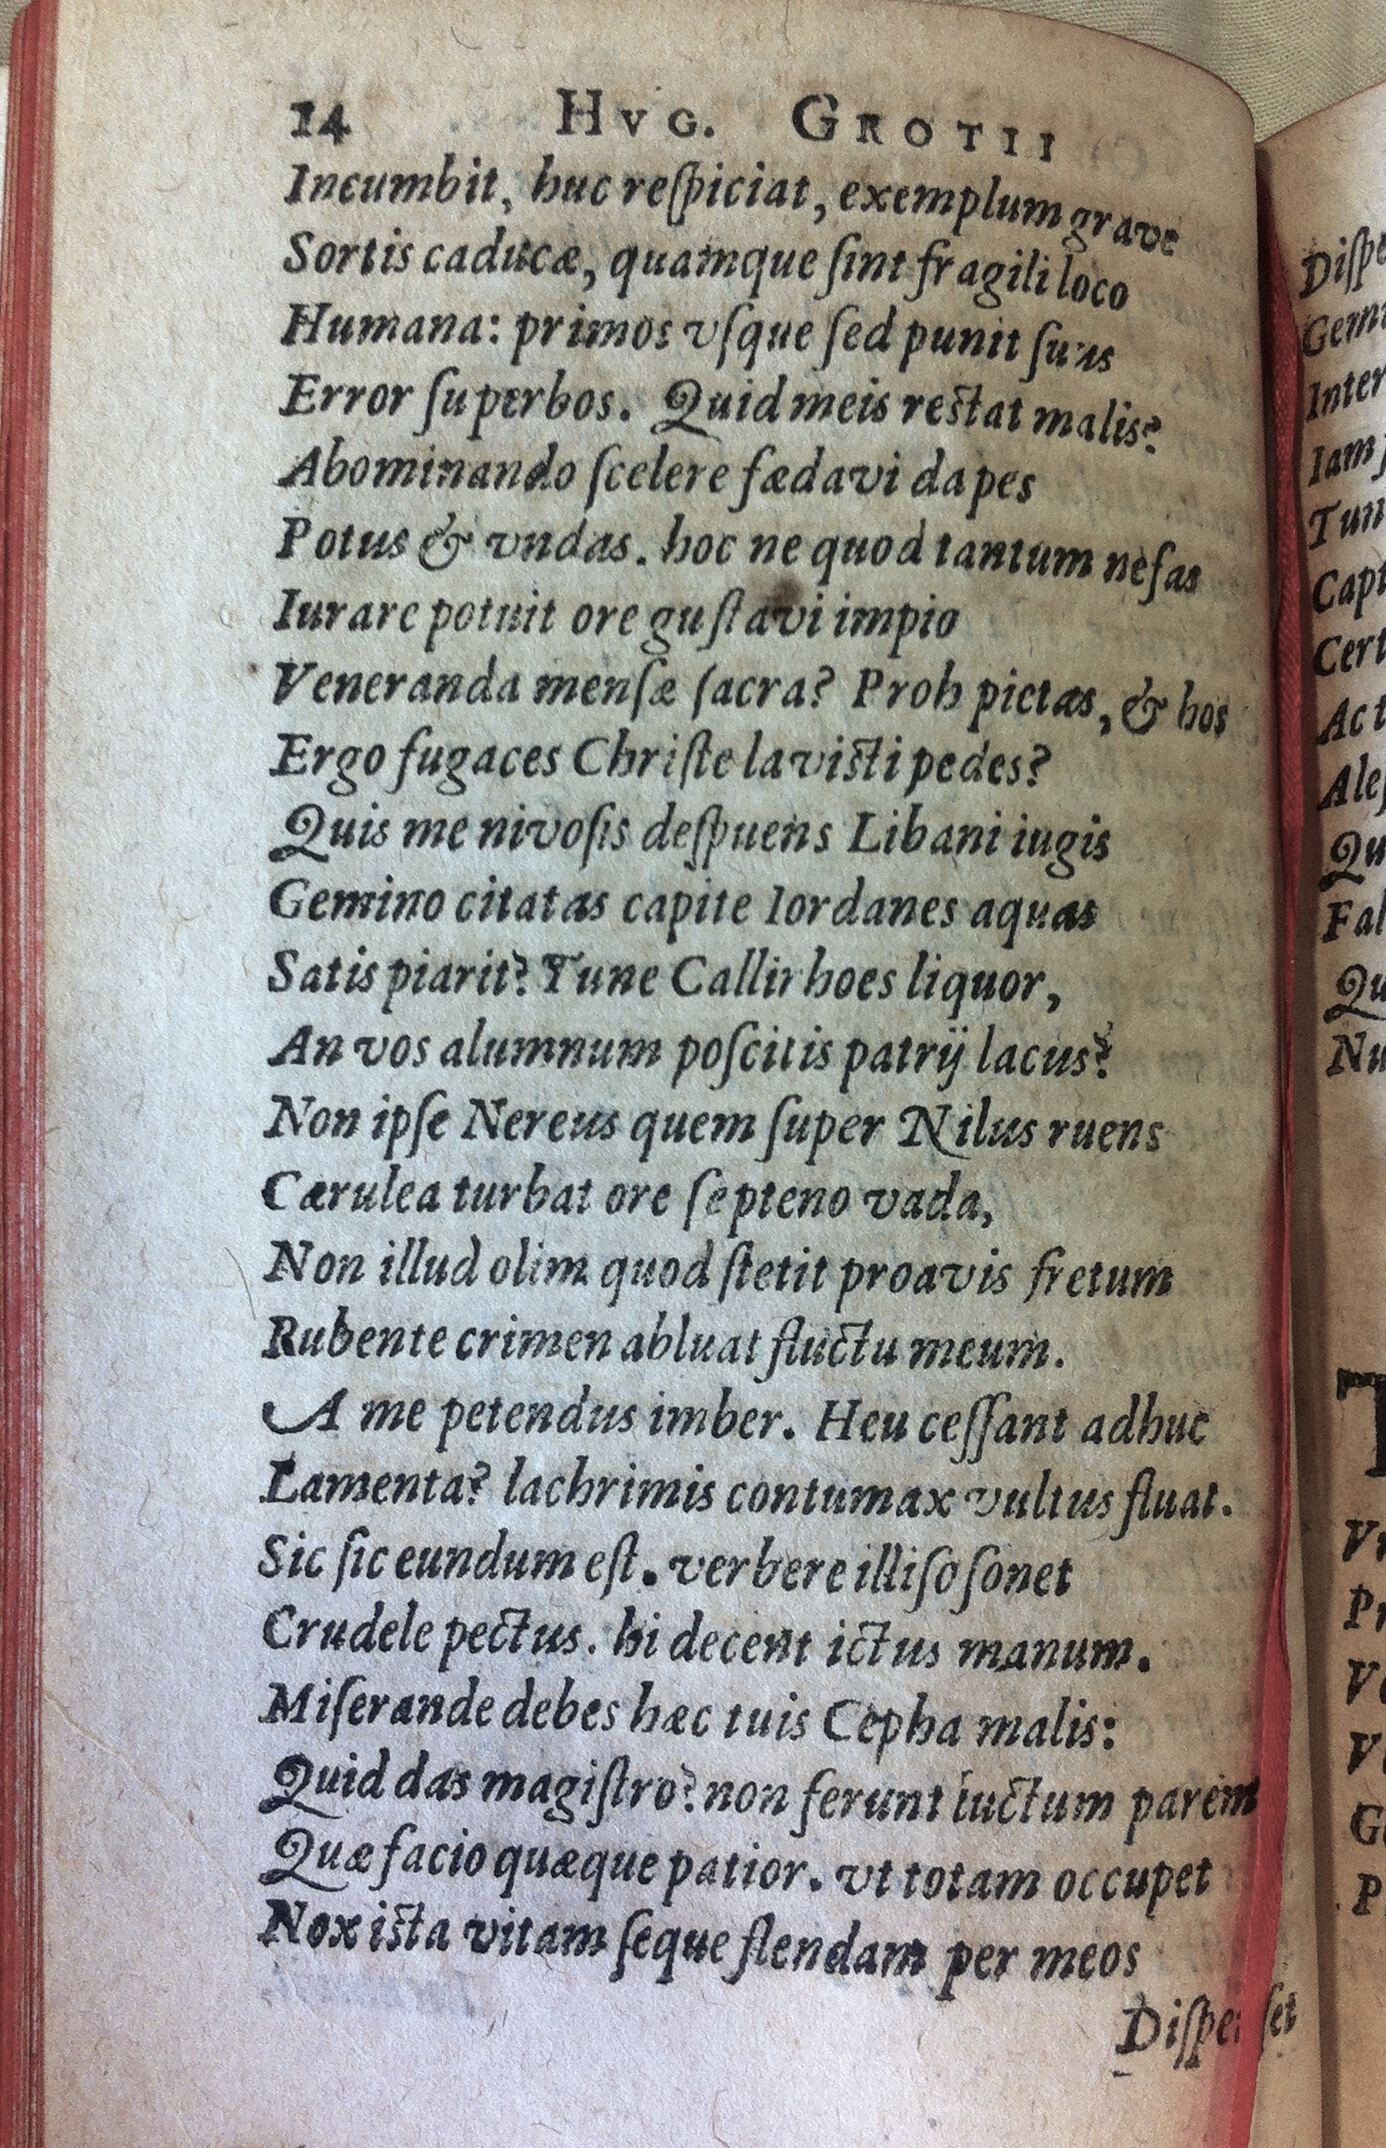 14 HVG. GROTII
Incumbit, huc reſpiciat, exemplum grave
Sortis caducæ, quamque ſint fragili loco
Humana: primos vſque ſed punit ſuus
Error ſuperbos. Quid meis reſtat malis?
Abominando ſcelere fædavi dapes
Potus & vndas. hoc ne quod tantum nefas
Iurare potuit ore guſtavi impio
Veneranda menſæ ſacra? Proh pietas, & hos
Ergo fugaces Chriſte laviſti pedes?
Quis me nivoſis deſpuens Libani iugis
Gemino citatas capite Iordanes aquas
Satis piarit? Tune Callirhoes liquor,
An vos alumnum poſcitis patrij lacus?
Non ipſe Nereus quem ſuper Nilus ruens
Cærulea turbat ore ſepteno vada,
Non illud olim quod ſtetit proavis fretum
Rubente crimen abluat fluctu meum.
A me petendus imber. Heu ceſſant adhuc
Lamenta? lachrimis contumax vultus fluat.
Sic ſic eundum eſt. verbere illiſo ſonet
Crudele pectus. hi decent ictus manum.
Miſerande debes hæc tuis Cepha malis:
Quid das magiſtro? non ferunt luctum parem
Quæ facio quæque patior. vt totam occupet
Nox iſta vitam ſeque flendam per meos
Diſpenſet
Iam
Tun
Capt
Cert
Ac t
Qu
Fal
Qu
Nu
T